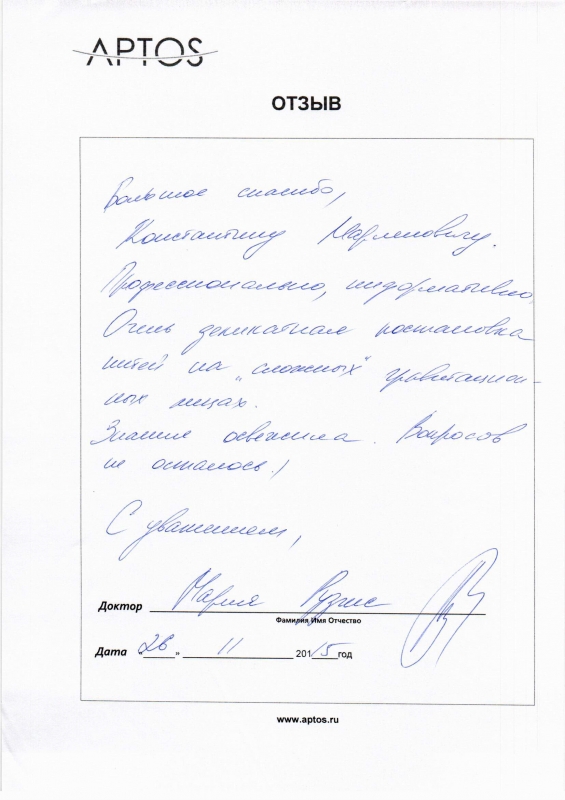 APTOS
ОТЗЫВ
Большое спасибо,
Константину Марленовичу.
Профессионально, информативно.
Очень деликатная постановка
нитей на "сложных" гравитацион-
ных лицах.
Знания освежила. Вопросов
не осталось!
С уважением,
Доктор Мария
Фамилия Имя Отчество
Дата "26" 11 2015 год
www.aptos.ru